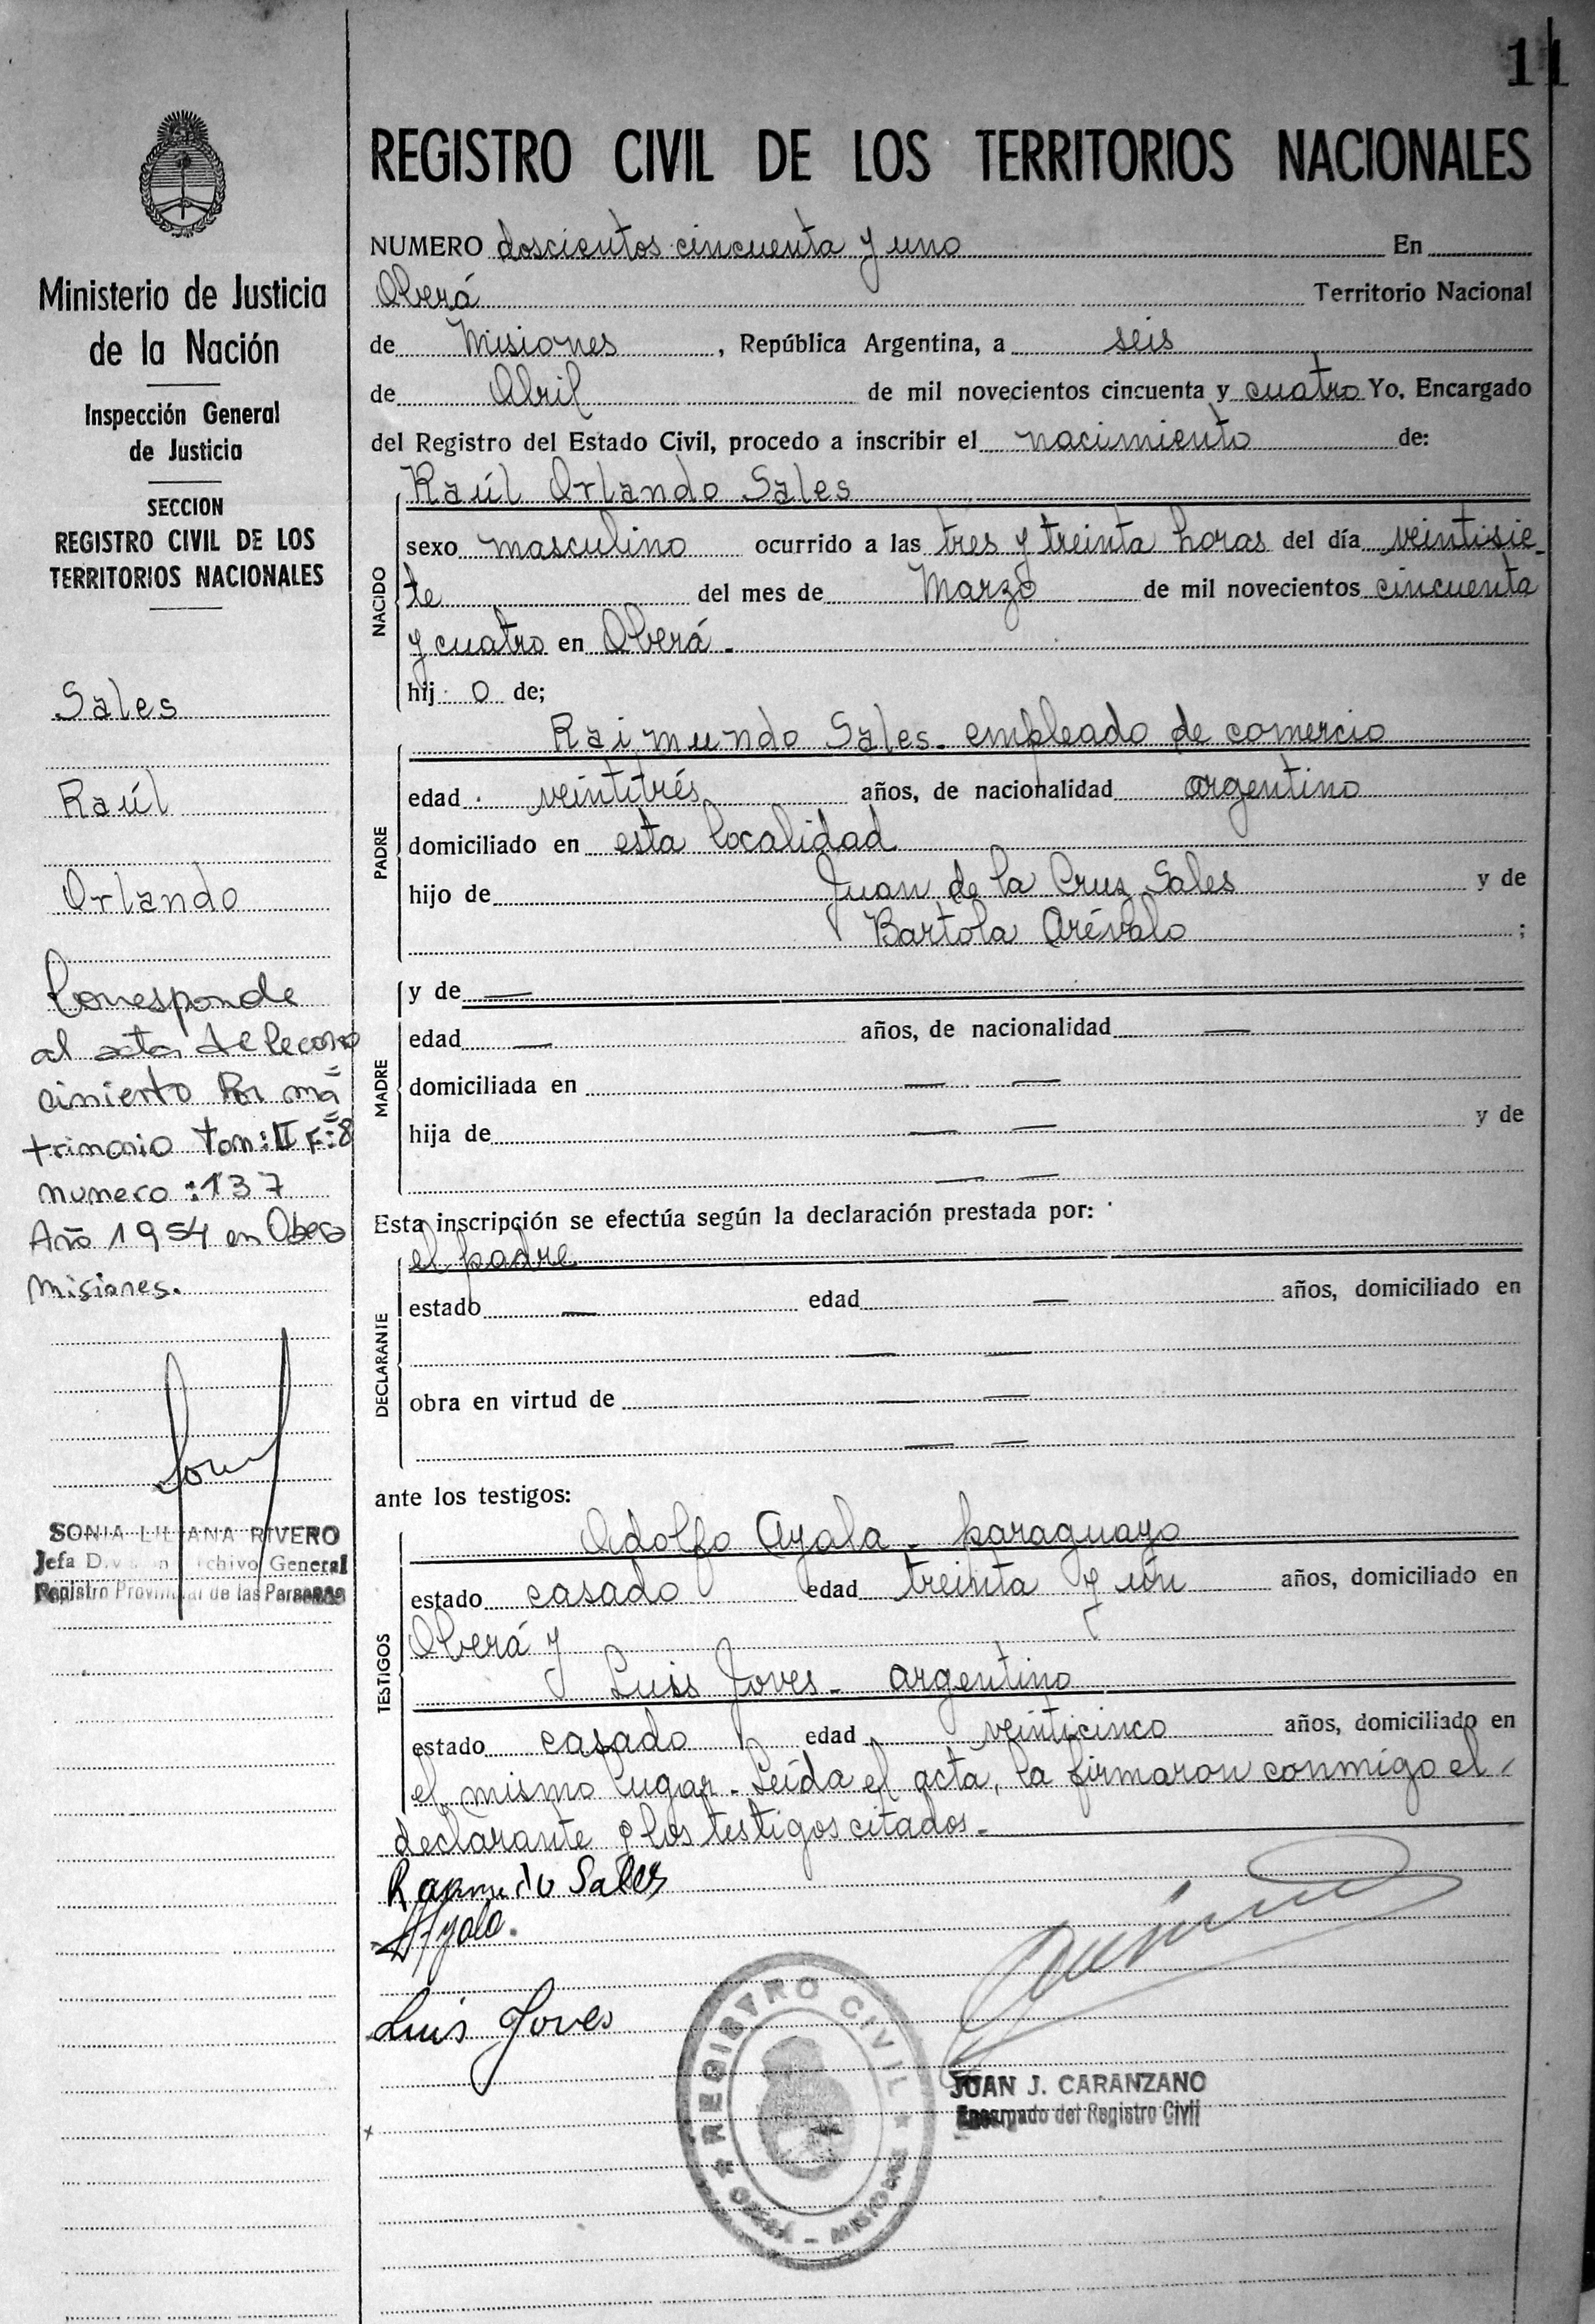 11
REGISTRO CIVIL DE LOS TERRITORIOS NACIONALES
Ministerio de Justicia
de la Nación
Inspección General
de Justicia
SECCION
REGISTRO CIVIL DE LOS
TERRITORIOS NACIONALES
Sales
Raúl
Orlando
Corresponde
al acta de Recono
cimiento Por ma=
trimonio Tom: II F:8
numero: 137
Año 1954 en Obera
Misiones.
SONIA LILIANA RIVERO
Jefa División Archivo General
Registro Provincial de las Personas
NUMERO doscientos cincuenta y uno En
Oberá Territorio Nacional
de Misiones, República Argentina, a seis
de Abril de mil novecientos cincuenta y cuatro Yo, Encargado
del Registro del Estado Civil, procedo a inscribir el nacimiento de:
Raúl Orlando Sales
NACIDO
sexo masculino ocurrido a las tres y treinta horas del día veintisie-
te del mes de Marzo de mil novecientos cincuenta
y cuatro en Oberá.
hijo de;
Raimundo Sales. empleado de comercio
PADRE
edad veintitrés años, de nacionalidad argentino
domiciliado en esta localidad
hijo de Juan de la Cruz Sales y de
Bartola Arévalo ;
MADRE
y de —
edad — años, de nacionalidad —
domiciliada en — —
hija de — — y de
— —
Esta inscripción se efectúa según la declaración prestada por:
el padre
DECLARANTE
estado — edad — años, domiciliado en
— —
obra en virtud de — —
— —
ante los testigos:
Adolfo Ayala - paraguayo
TESTIGOS
estado casado edad treinta y un años, domiciliado en
Oberá y
Luis Joves - argentino
estado casado edad veinticinco años, domiciliado en
el mismo lugar - Leída el acta, la firmaron conmigo el
declarante y los testigos citados.-
Raymundo Sales
AAyala.
Luis Joves
REGISTRO CIVIL
OBERA - MISIONES
JUAN J. CARANZANO
Encargado del Registro Civil